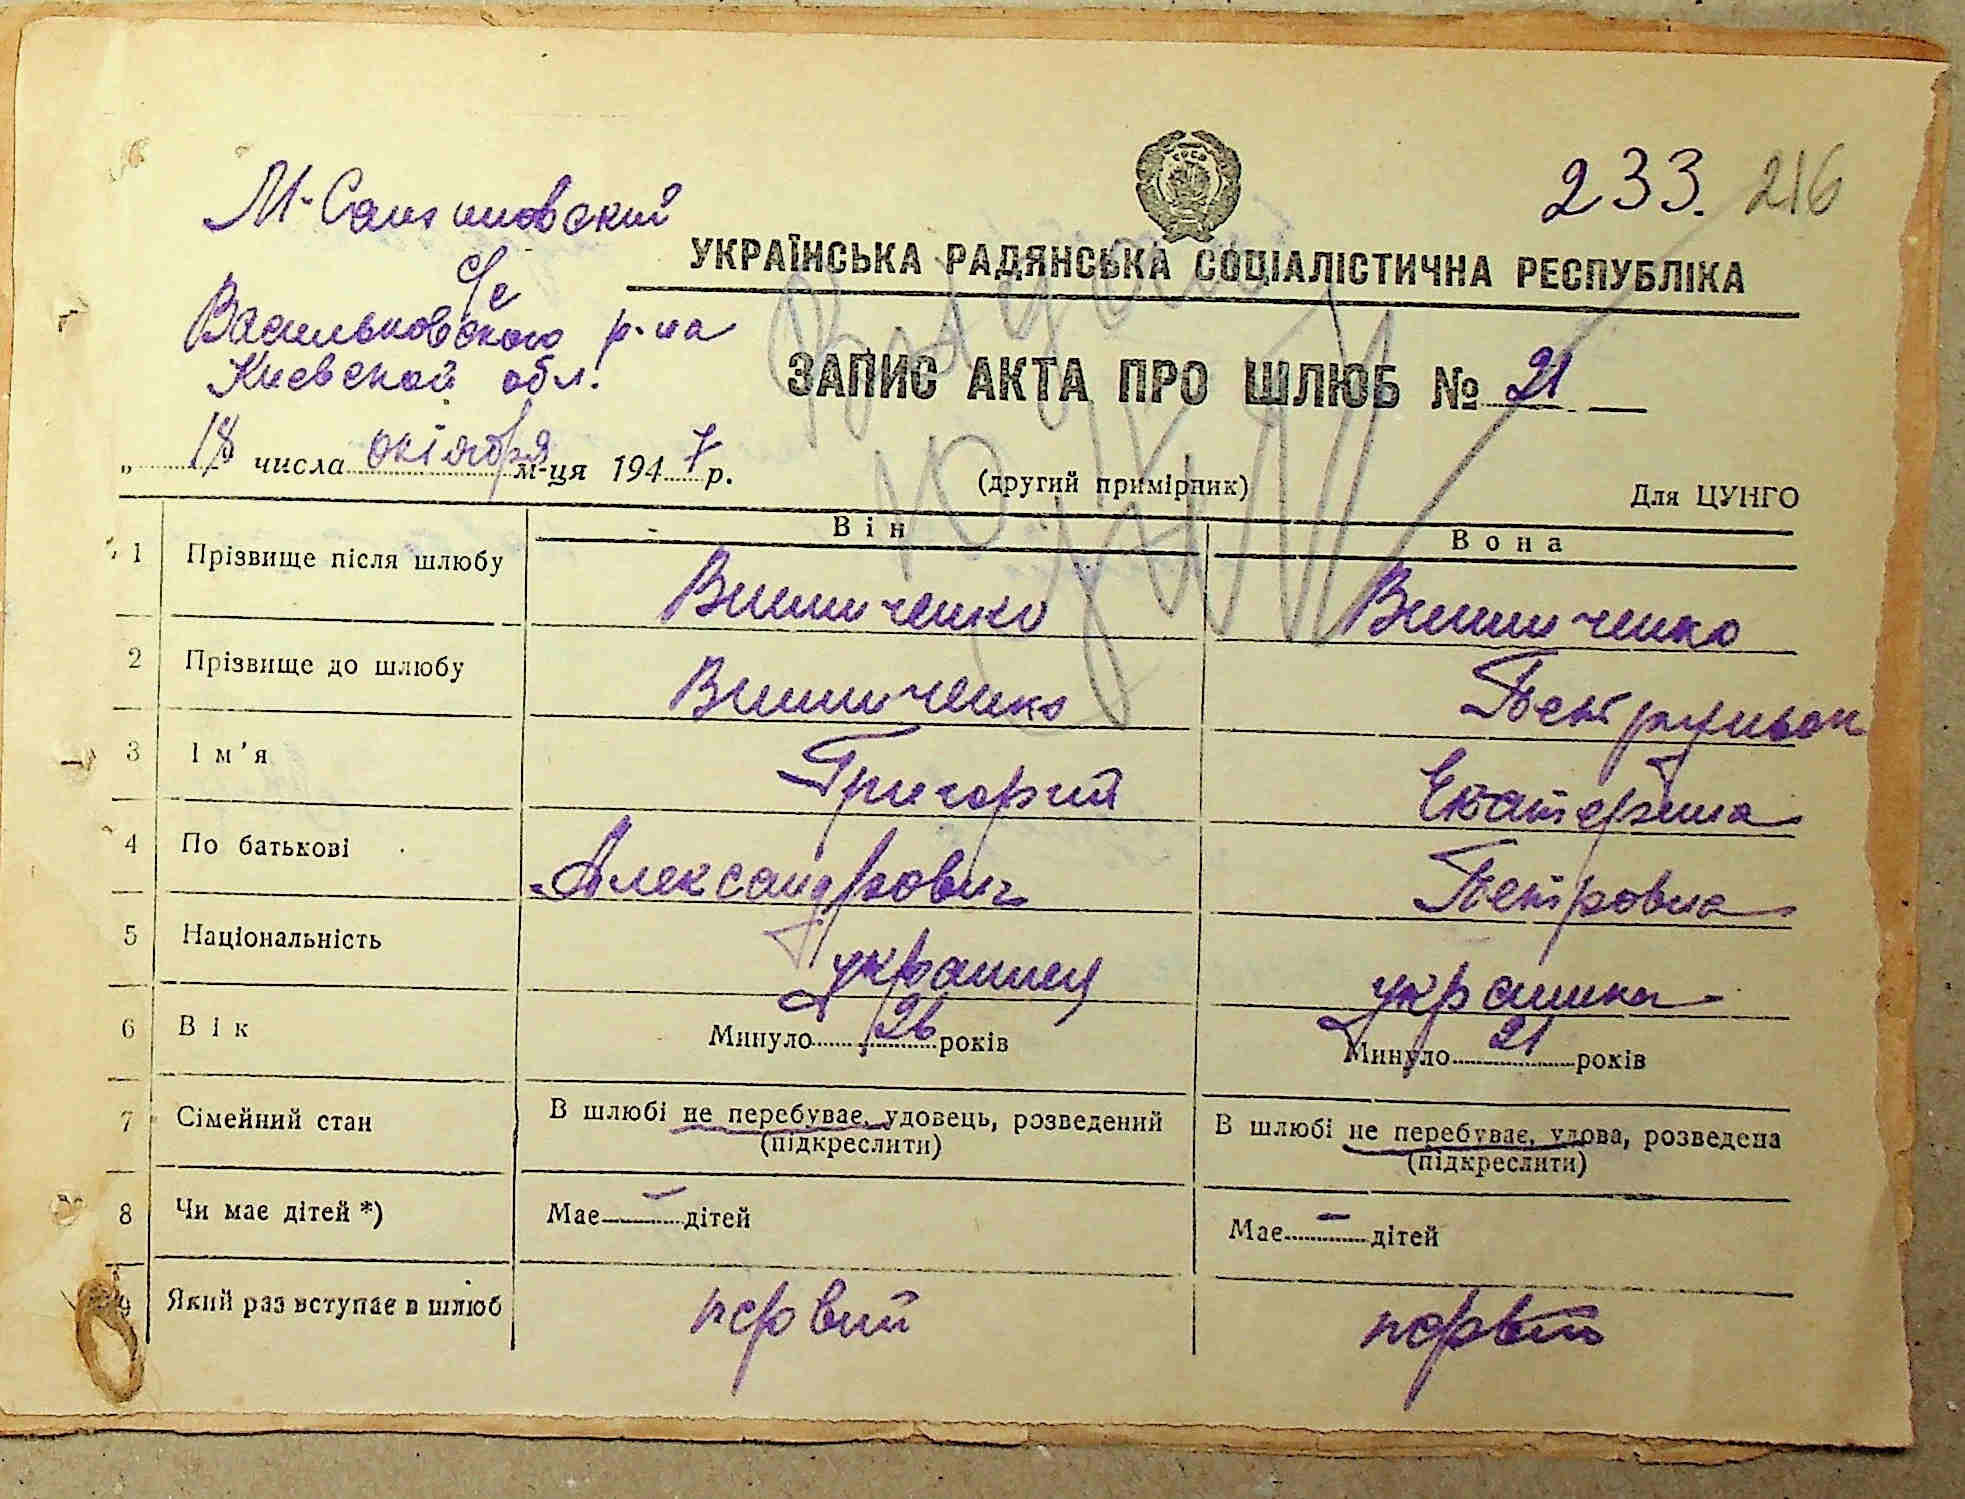 233. 216
М-Салтановский
с/с
Васильковского р-на
Киевской обл.
УКРАЇНСЬКА РАДЯНСЬКА СОЦІАЛІСТИЧНА РЕСПУБЛІКА
ЗАПИС АКТА ПРО ШЛЮБ № 21
„ 18 числа октября м-ця 1947 р.
(другий примірник)
Для ЦУНГО
Він Вона
1 Прізвище після шлюбу Винниченко Винниченко
2 Прізвище до шлюбу Винниченко
3 Ім'я Григорий Екатерина
4 По батькові Александрович Петровна
5 Національність украинец украинка
6 Вік Минуло 26 років Минуло 21 років
7 Сімейний стан В шлюбі не перебуває, удовець, розведений В шлюбі не перебуває, удова, розведена
(підкреслити) (підкреслити)
8 Чи має дітей *) Має — дітей Має — дітей
9 Який раз вступає в шлюб первий первий